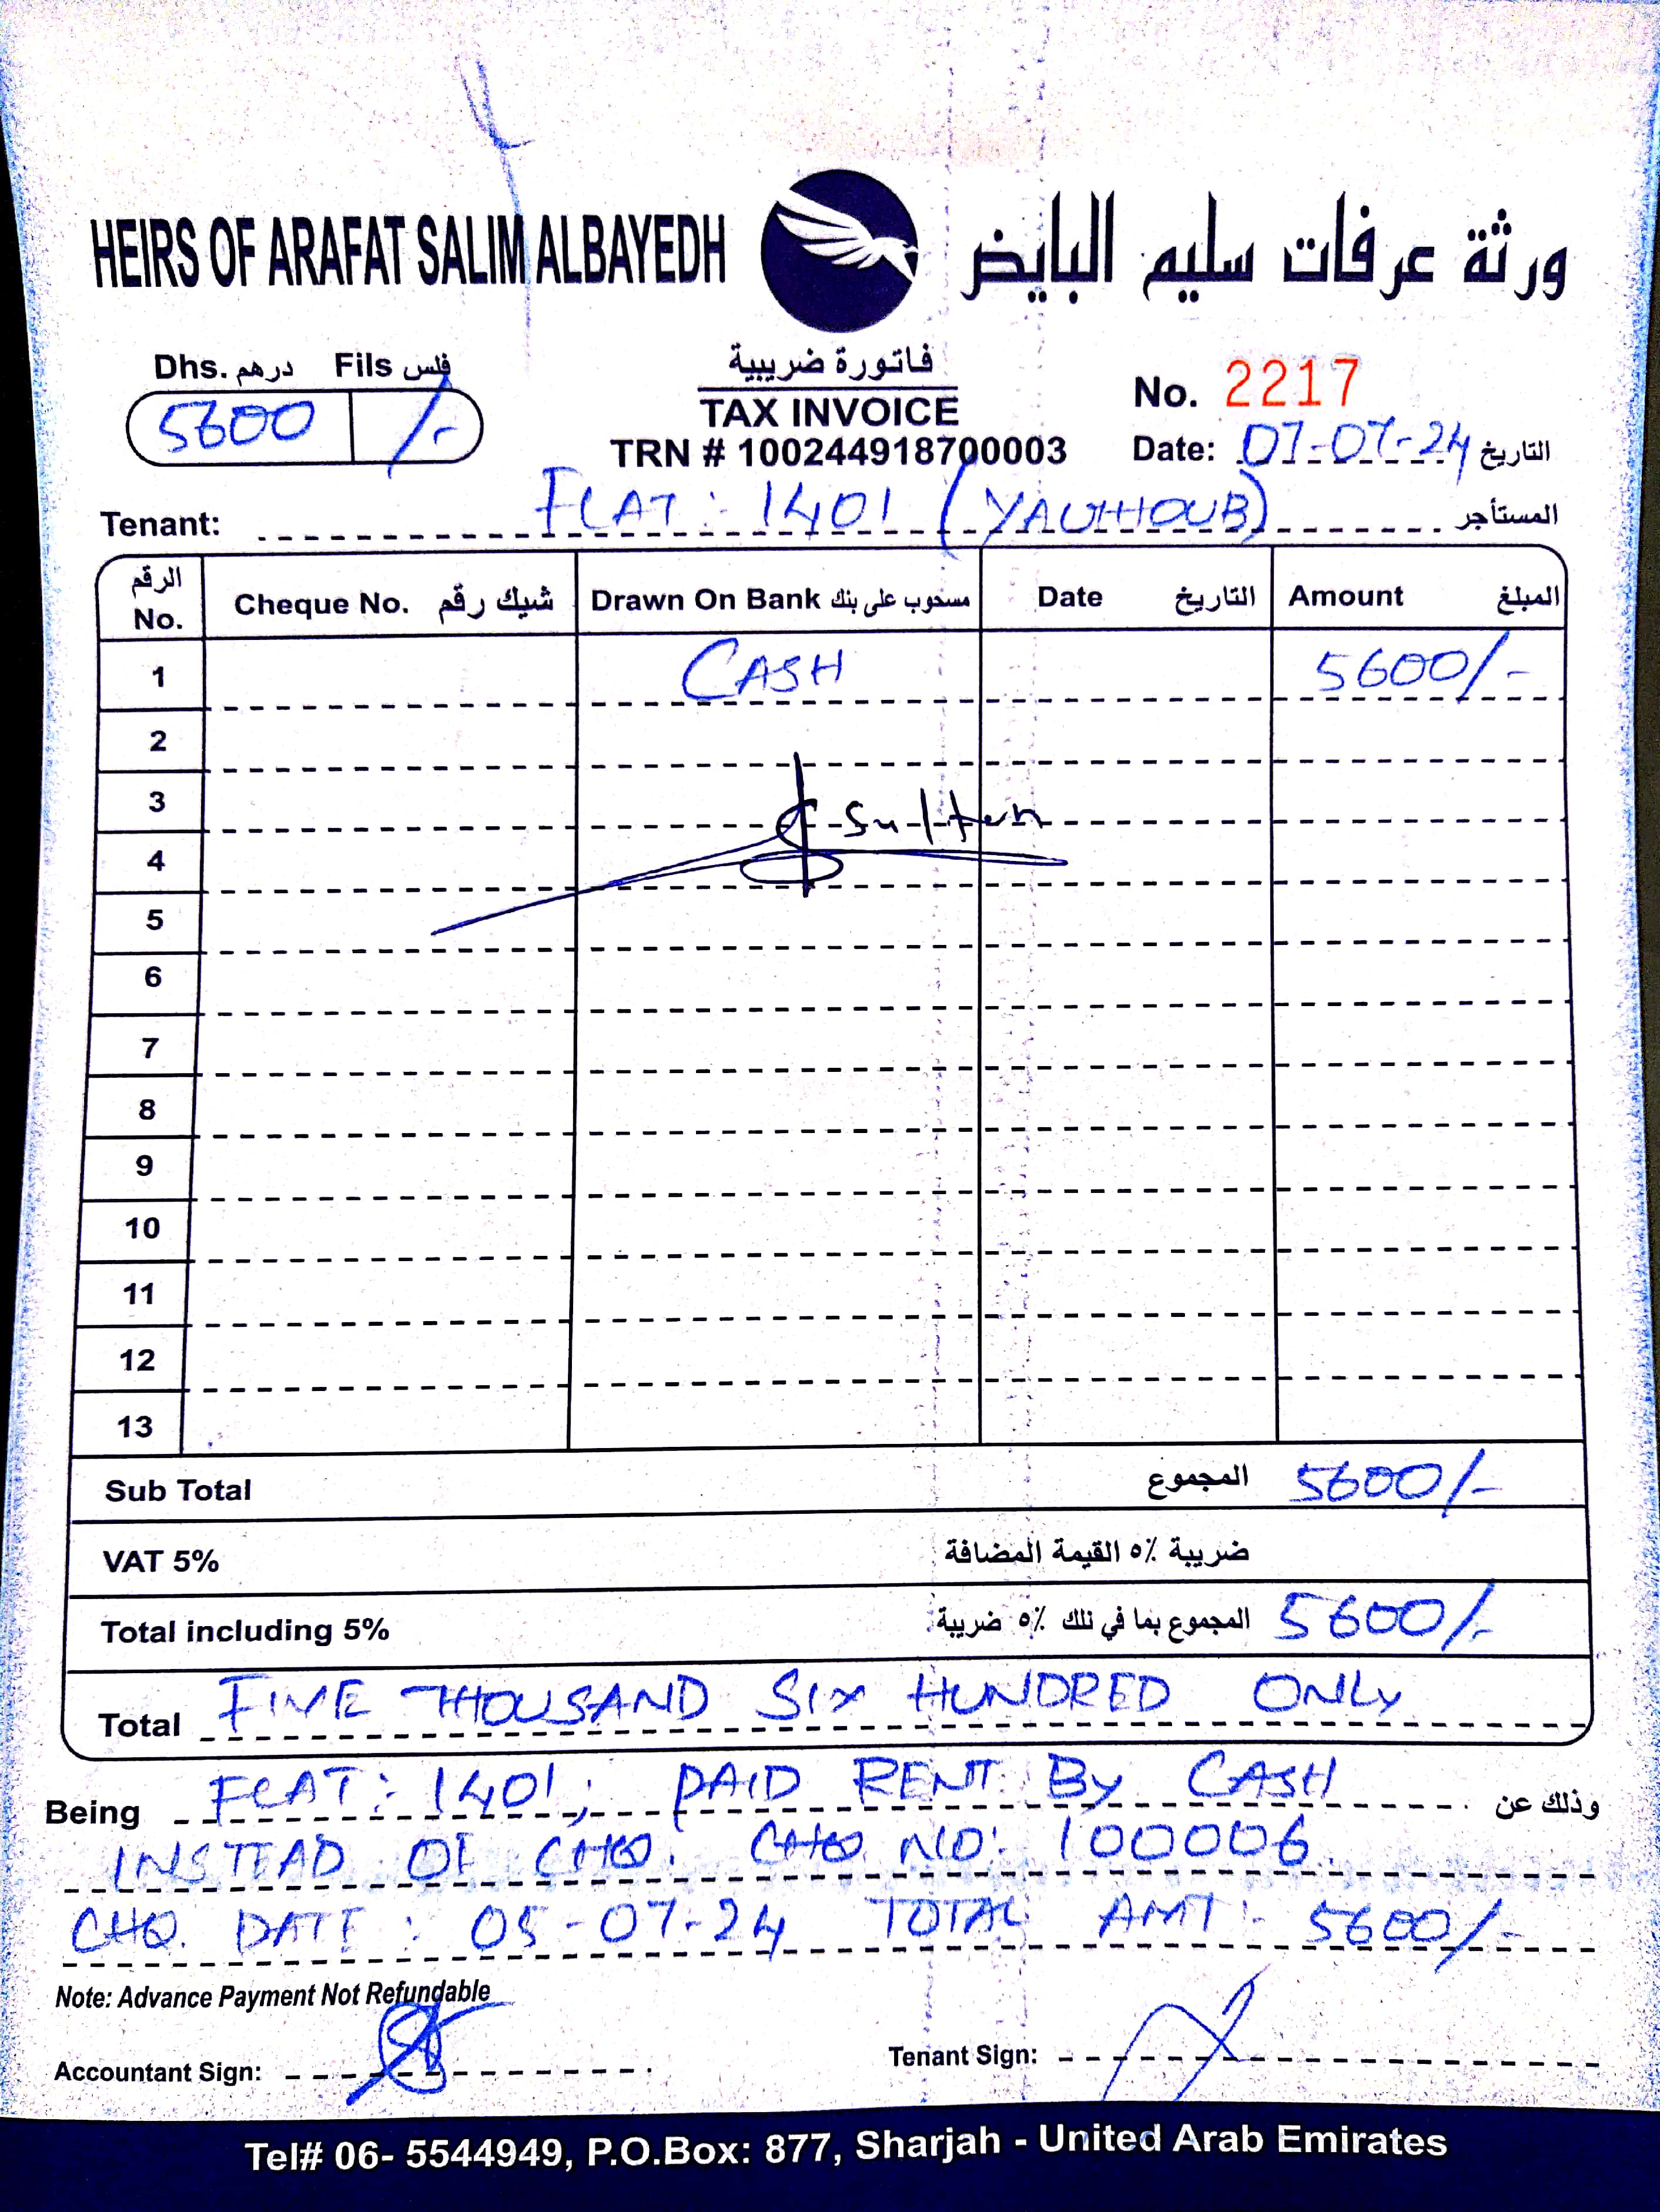 HEIRS OF ARAFAT SALIM ALBAYEDH ورثة عرفات سليم البايض
Dhs. درهم Fils فلس
5600 /-
فاتورة ضريبية
TAX INVOICE
TRN # 100244918700003
No. 2217
Date: 07-07-24 التاريخ
Tenant: FLAT : 1401 (YAUHOUB) المستأجر
الرقم No. Cheque No. شيك رقم Drawn On Bank مسحوب على بنك Date التاريخ Amount المبلغ
1 CASH 5600/-
2
3 Sultan
4
5
6
7
8
9
10
11
12
13
Sub Total المجموع 5600/-
VAT 5% ضريبة ٥٪ القيمة المضافة
Total including 5% المجموع بما في تلك ٥٪ ضريبة 5600/-
Total FIVE THOUSAND SIX HUNDRED ONLY
Being FLAT : 1401, PAID RENT BY CASH وذلك عن
INSTEAD OF CHQ. CHQ NO: 100006
CHQ. DATE : 05-07-24 TOTAL AMT :- 5600/-
Note: Advance Payment Not Refundable
Accountant Sign: Tenant Sign:
Tel# 06- 5544949, P.O.Box: 877, Sharjah - United Arab Emirates